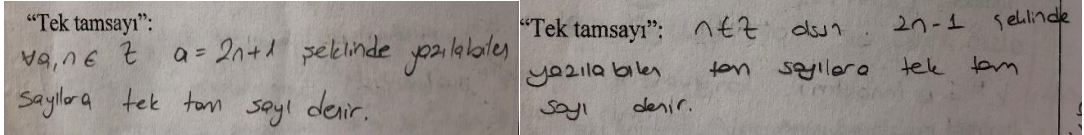 “Tek tamsayı”:
∀a,n ∈ Z a = 2n+1 şeklinde yazılabilen
sayılara tek tam sayı denir.
“Tek tamsayı”: n ∈ Z olsun. 2n-1 şeklinde
yazılabilen tam sayılara tek tam
sayı denir.